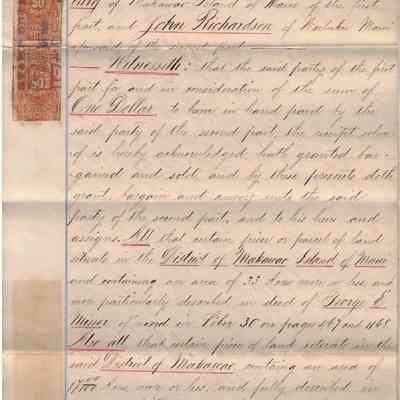 of Makawao Island of Maui of the first
part, and John Richardson of Wailuku Maui
aforesaid of the second part
Witnesseth: that the said party of the first
part for and in consideration of the sum of
One Dollar to him in hand paid by the
said party of the second part, the receipt where
of is hereby acknowledged, hath granted bar-
gained and sold, and by these presents doth
grant, bargain and convey unto the said
party of the second part, and to his heirs and
assigns. All that certain piece or parcel of land
situate in the District of Makawao Island of Maui
and containing an area of 33 Acres more or less and
more particularly described in deed of George E
Miner of record in Liber 30 on pages 467 and 468
Also all that certain piece of land situate in the
said District of Makawao, containing an area of
Acres more or less, and fully described in